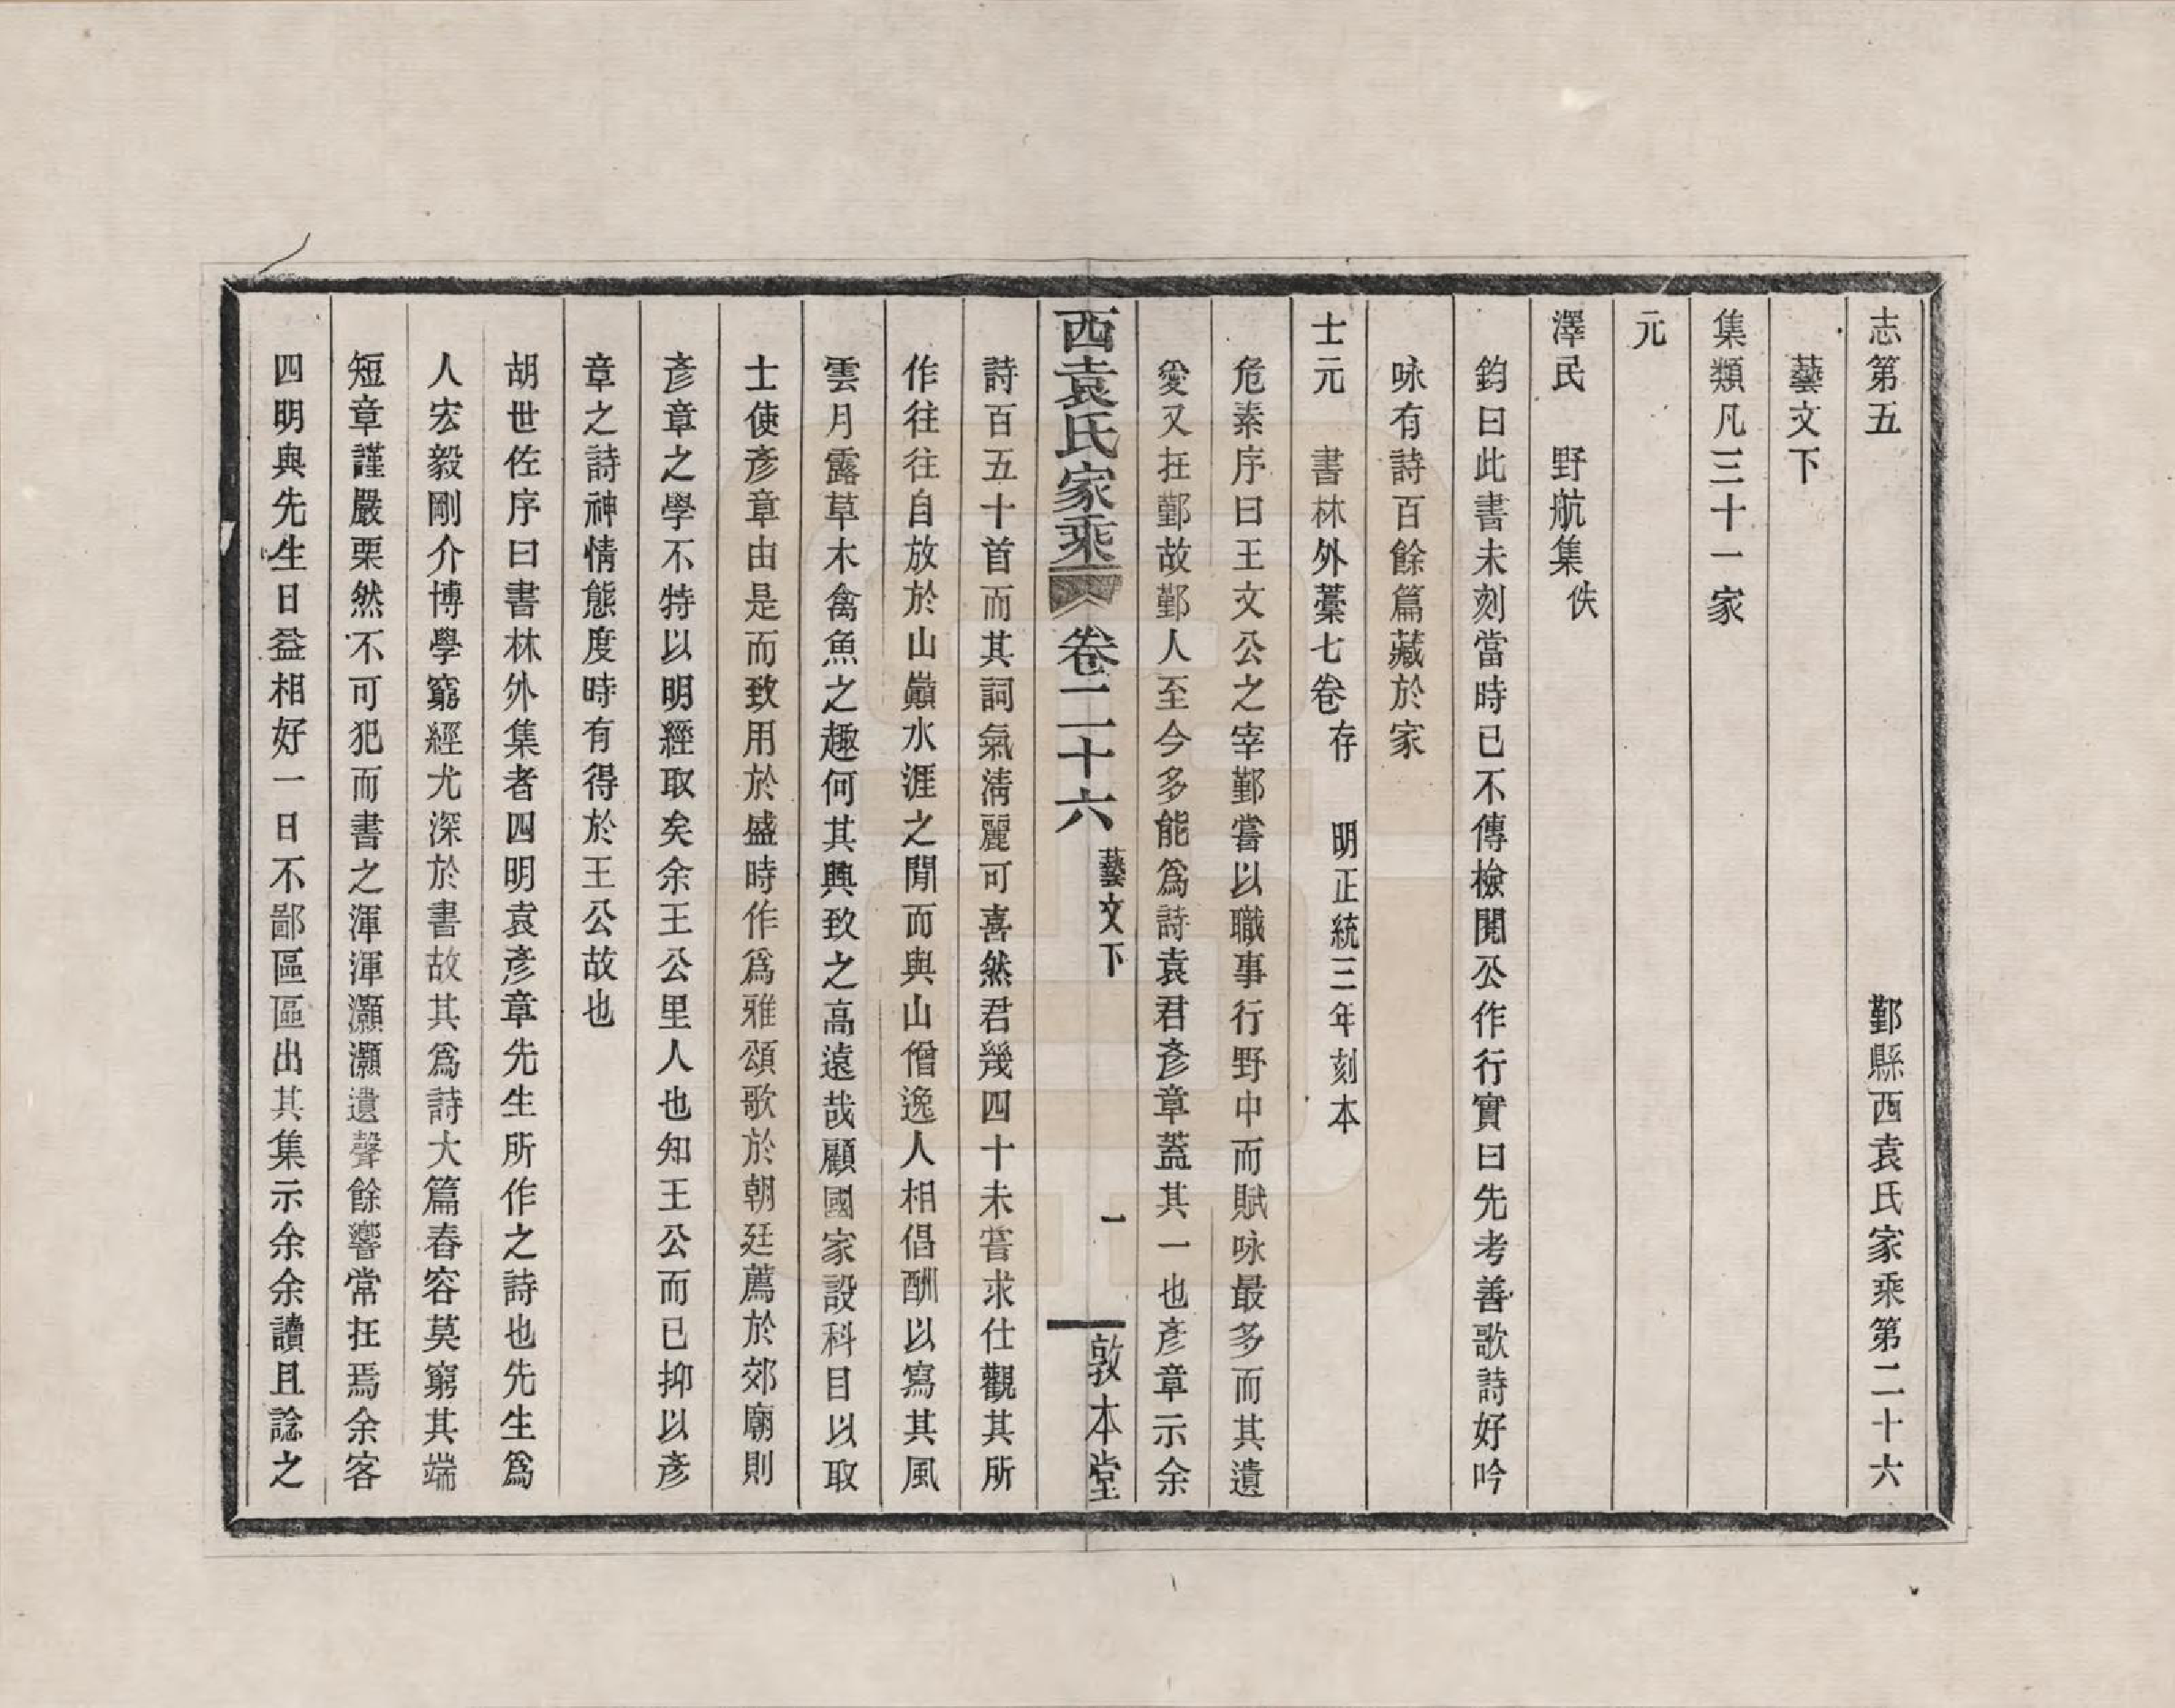 志第五　鄞縣西袁氏家乘第二十六
藝文下
集類凡三十一家
元
澤民　野航集佚
鈞曰此書未刻當時已不傳檢閱公作行實曰先考善歌詩好吟
咏有詩百餘篇藏於家
士元　書林外藁七卷存　明正統三年刻本
危素序曰王文公之宰鄞嘗以職事行野中而賦咏最多而其遺
愛又在鄞故鄞人至今多能爲詩袁君彥章蓋其一也彥章示余
西袁氏家乘　卷二十六　藝文下　一　敦本堂
詩百五十首而其詞氣淸麗可喜然君幾四十未嘗求仕觀其所
作往往自放於山巓水涯之閒而與山僧逸人相倡酬以寫其風
雲月露草木禽魚之趣何其興致之高遠哉顧國家設科目以取
士使彥章由是而致用於盛時作爲雅頌歌於朝廷薦於郊廟則
彥章之學不特以明經取矣余王公里人也知王公而已抑以彥
章之詩神情態度時有得於王公故也
胡世佐序曰書林外集者四明袁彥章先生所作之詩也先生爲
人宏毅剛介博學窮經尤深於書故其爲詩大篇舂容莫窮其端
短章謹嚴栗然不可犯而書之渾渾灝灝遺聲餘響常在焉余客
四明與先生日益相好一日不鄙區區出其集示余余讀且諗之